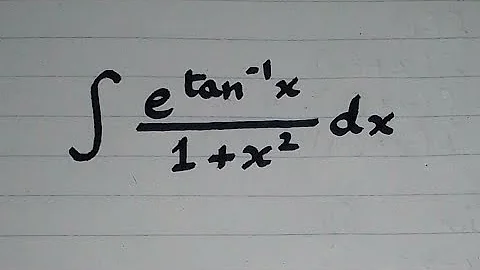 ∫ e^{tan⁻¹x} / (1+x²) dx